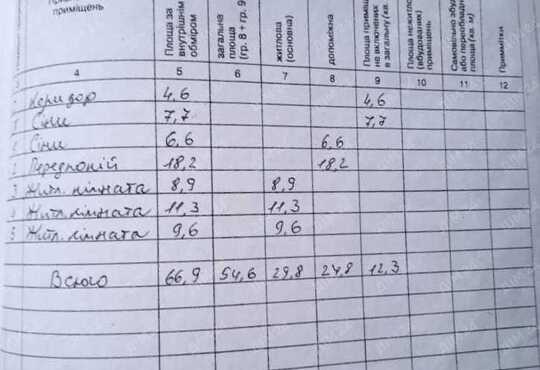 приміщень
Площа за внутрішнім обміром
загальна площа (гр. 8 + гр. 9
житлова (основна)
допоміжна
Площа приміщ не включених в загальну (кв.
Площа нежитло (вбудованих) приміщень
Самовільно збуд або переобладн площа (кв. м)
Примітки
4 5 6 7 8 9 10 11 12
Коридор 4,6 4,6
Сіни 7,7 7,7
Сіни 6,6 6,6
2 Передпокій 18,2 18,2
3 Житл. кімната 8,9 8,9
4 Житл. кімната 11,3 11,3
5 Житл. кімната 9,6 9,6
Всього 66,9 54,6 29,8 24,8 12,3